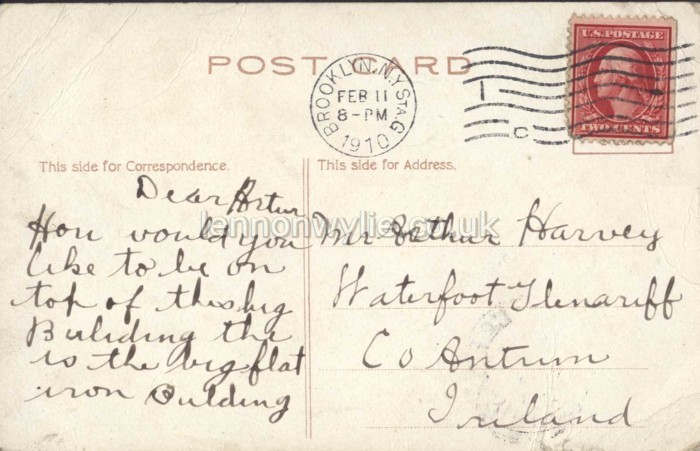 U.S. POSTAGE
TWO CENTS
POST CARD
BROOKLYN, N.Y. STA. G
FEB 11
8-PM
1910
C
This side for Correspondence.
This side for Address.
Dear Artur
How would you
like to be on
top of this big
Buliding this
is the big flat
iron Bulding
Mr Arthur Harvey
Waterfoot Glenariff
Co Antrim
Ireland
lennonwylie.co.uk